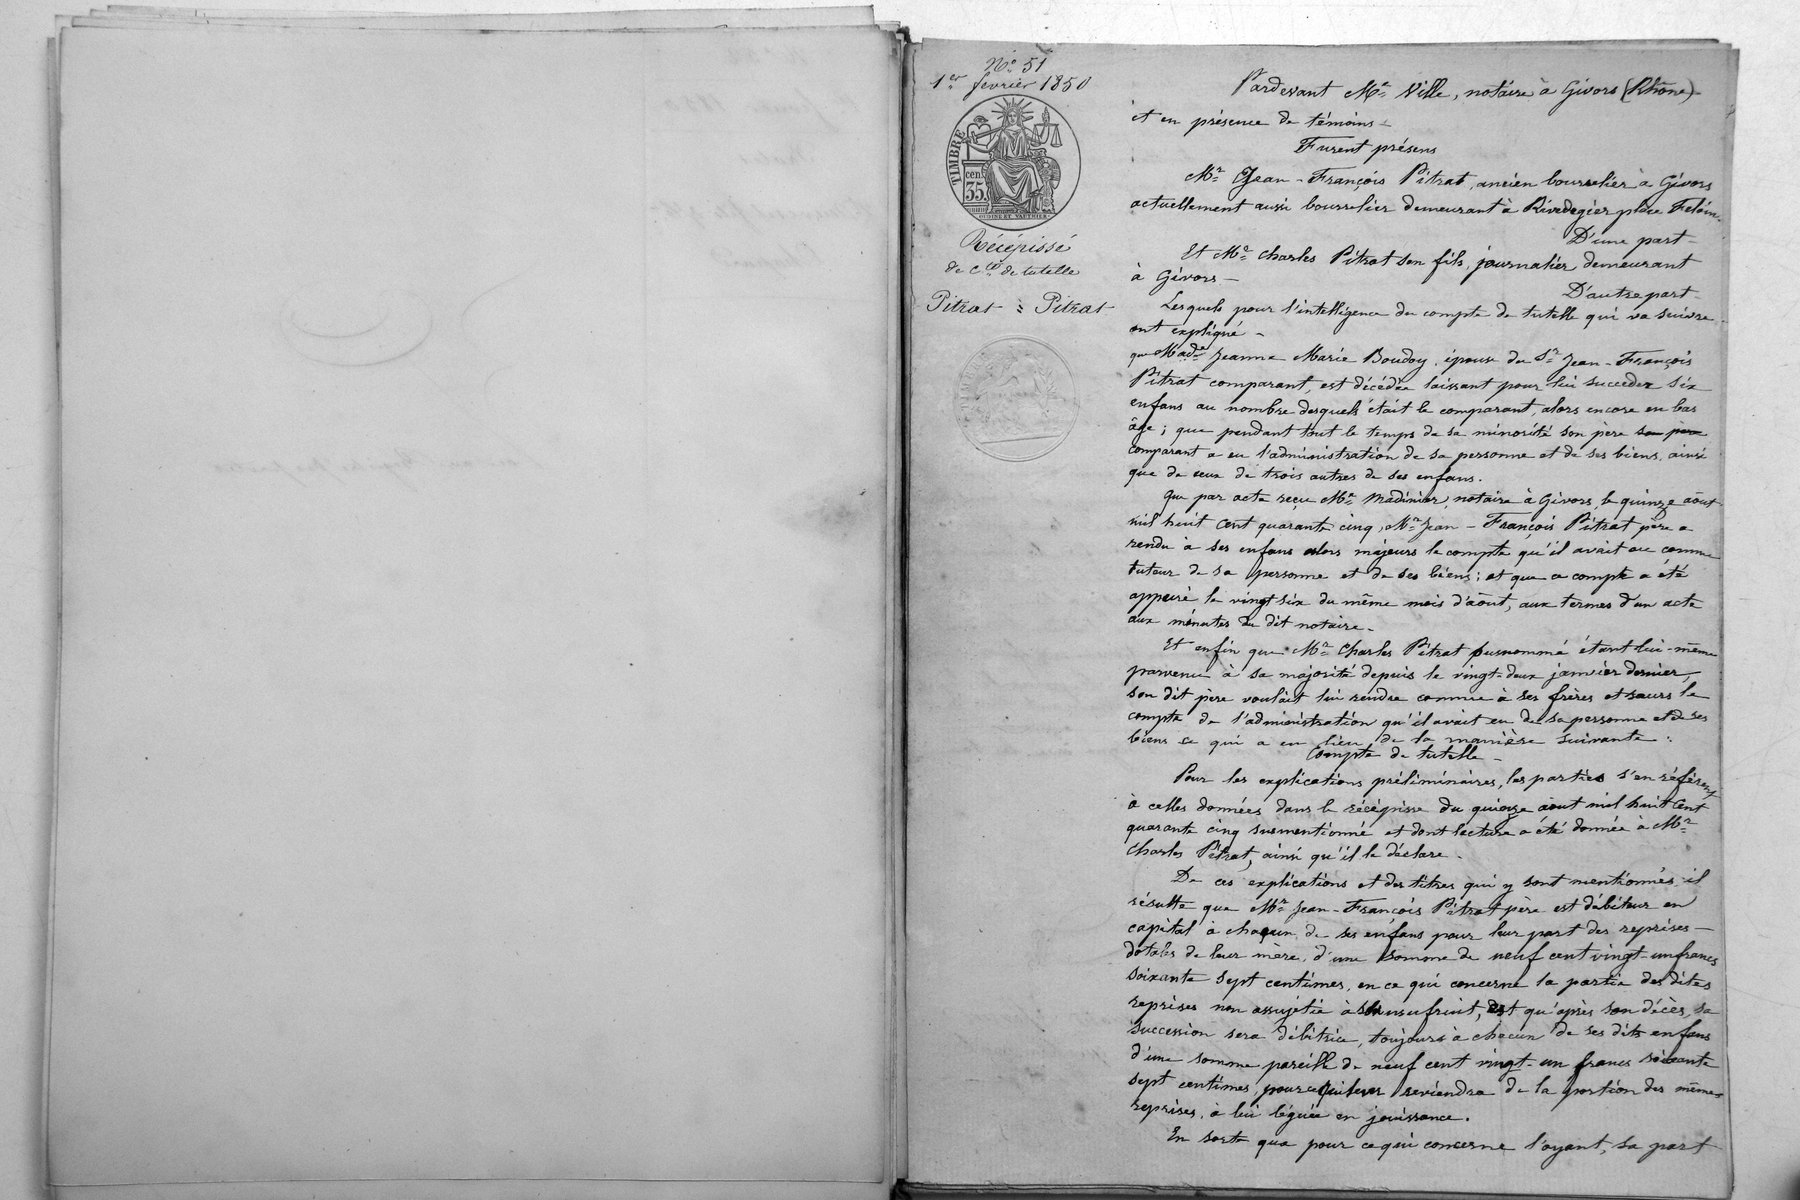 N° 51
1er fevrier 1850
TIMBRE
cen.
35.
OUDINE ET VAUTHIER
Récépissé
de Cte de tutelle
Pitrat : Pitrat
Pardevant Me Ville, notaire à Givors (Rhône)
et en présence de témoins
Furent présens
Mr Jean-François Pitrat, ancien bourrelier à Givors
actuellement aussi bourrelier demeurant à Rivedegier place Feloin
D'une part
Et Mr Charles Pitrat son fils, journalier demeurant
à Givors
D'autre part
Lesquels pour l'intelligence du compte de tutelle qui va suivre
ont expliqué
que Made Jeanne Marie Boudoy, épouse du Sr Jean-François
Pitrat comparant, est décédée laissant pour lui succeder six
enfans au nombre desquels était le comparant, alors encore en bas
âge; que pendant tout le temps de sa minorité son père son père
comparant a eu l'administration de sa personne et de ses biens, ainsi
que de ceux de trois autres de ses enfans.
Que par acte reçu Me Madinier, notaire à Givors le quinze août
mil huit cent quarante cinq, Mr Jean-François Pitrat père a
rendu à ses enfans alors majeurs le compte qu'il avait eu comme
tuteur de sa personne et de ses biens; et que ce compte a été
appuré le vingt six du même mois d'août, aux termes d'un acte
aux minutes du dit notaire.
Et enfin que Mr Charles Pitrat susnommé étant lui-même
parvenu à sa majorité depuis le vingt-deux janvier dernier,
son dit père voulait lui rendre comme à ses frères et sœurs le
compte de l'administration qu'il avait eu de sa personne et de ses
biens ce qui a eu lieu de la manière suivante:
Compte de tutelle
Pour les explications préliminaires, les parties s'en réfèrent
à celles données dans le récépissé du quinze août mil huit cent
quarante cinq susmentionné et dont lecture a été donnée à Mr
Charles Pitrat, ainsi qu'il le déclare.
De ces explications et des titres qui y sont mentionnés, il
résulte que Mr Jean-François Pitrat père est débiteur en
capital à chacun de ses enfans pour leur part des reprises
dotales de leur mère, d'une somme de neuf cent vingt-un francs
soixante sept centimes, en ce qui concerne la partie des dites
reprises non assujétie à son usufruit, et qu'après son décès, sa
succession sera débitrice, toujours à chacun de ses dits enfans
d'une somme pareille de neuf cent vingt-un francs soixante
sept centimes, pour ce qui leur reviendra de la portion des mêmes
reprises, à lui léguée en jouissance.
En sorte que pour ce qui concerne l'oyant, sa part